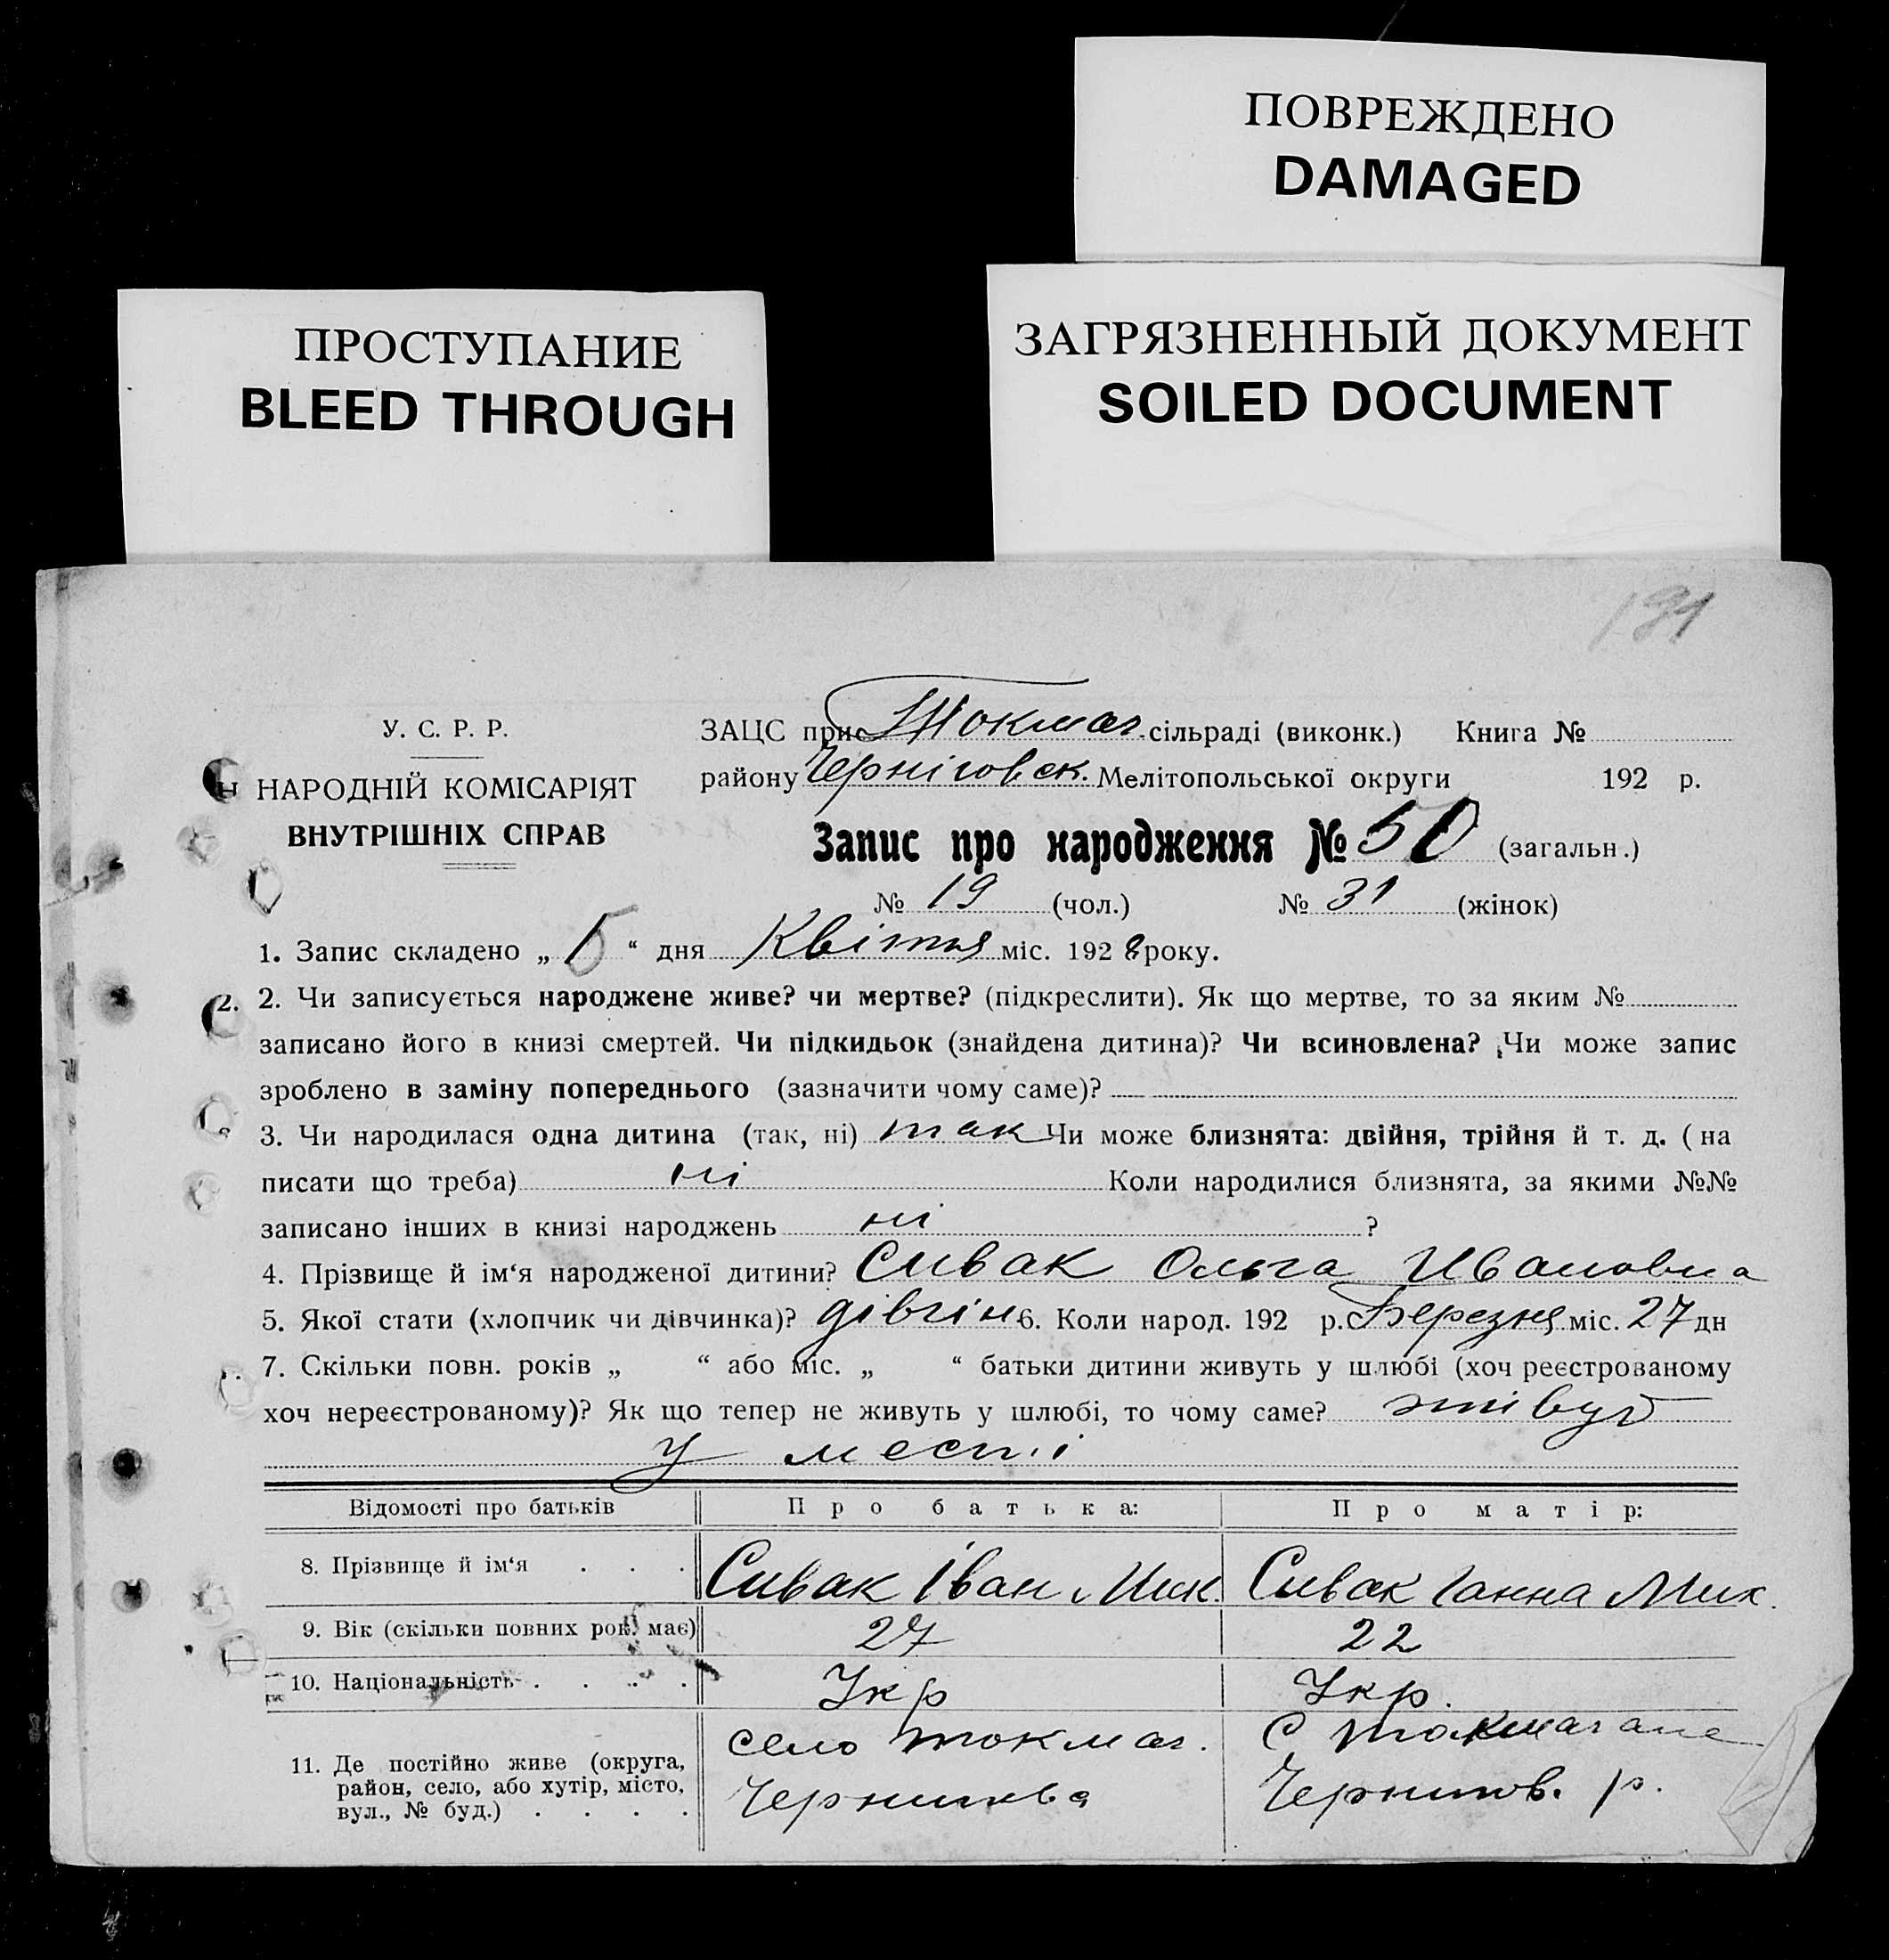 ПОВРЕЖДЕНО
DAMAGED
ПРОСТУПАНИЕ
BLEED THROUGH
ЗАГРЯЗНЕННЫЙ ДОКУМЕНТ
SOILED DOCUMENT
У. С. Р. Р.
НАРОДНІЙ КОМІСАРІЯТ
ВНУТРІШНІХ СПРАВ
ЗАЦС при с Токмач. сільраді (виконк.) Книга №
району Черніговск. Мелітопольської округи 192 р.
Запис про народження № 50 (загальн.)
№ 19 (чол.) № 31 (жінок)
1. Запис складено „ “ дня Квітня міс. 1928 року.
2. 2. Чи записується народжене живе? чи мертве? (підкреслити). Як що мертве, то за яким №
записано його в книзі смертей. Чи підкидьок (знайдена дитина)? Чи всиновлена? Чи може запис
зроблено в заміну попереднього (зазначити чому саме)?
3. Чи народилася одна дитина (так, ні) так Чи може близнята: двійня, трійня й т. д. (на
писати що треба) ні Коли народилися близнята, за якими №№
записано інших в книзі народжень ні ?
4. Прізвище й ім‘я народженої дитини? Сивак Ольга Ивановна
5. Якої стати (хлопчик чи дівчинка)? дівчін 6. Коли народ. 192 р. Березня міс. 27 дн
7. Скільки повн. років „ “ або міс. „ “ батьки дитини живуть у шлюбі (хоч реєстрованому
хоч нереєстрованому)? Як що тепер не живуть у шлюбі, то чому саме?
у
Відомості про батьків Про батька: Про матір:
8. Прізвище й ім‘я . . . Сивак Іван Мик. Сивак Ганна Мих.
9. Вік (скільки повних рок. має) 27 22
10. Національність . . . . Укр Укр.
11. Де постійно живе (округа,
район, село, або хутір, місто,
вул., № буд.) . . . .
село Токмач.
С
Чернигов. р.